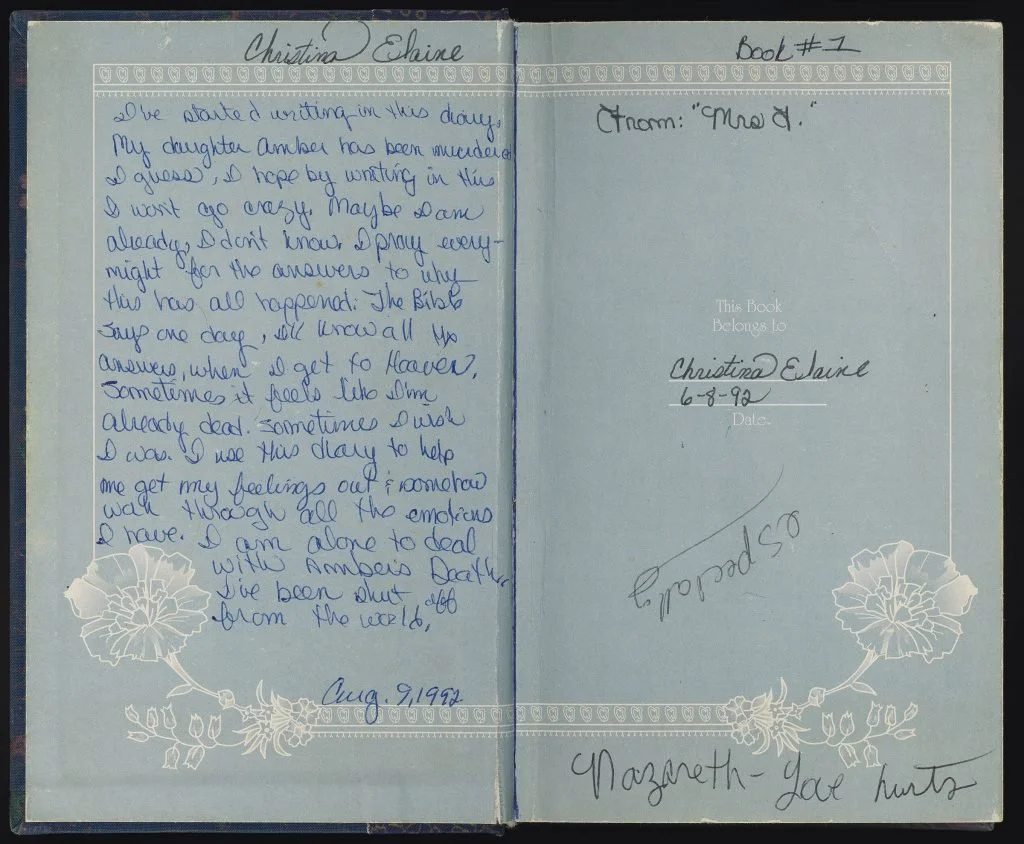 Christina Elaine
I've started writing in this diary,
My daughter Amber has been murdered
I guess, I hope by writing in this
I won't go crazy. Maybe I am
already, I don't know. I pray every-
night for the answers to why
this has all happened. The Bible
says one day, I'll know all the
answers, when I get to Heaven.
Sometimes it feels like I'm
already dead. Sometimes I wish
I was. I use this diary to help
me get my feelings out & somehow
walk through all the emotions
I have. I am alone to deal
with Amber's Death.
I've been shut off
from the world.
Aug. 9, 1992
Book #1
From: "Mrs. J."
This Book
Belongs to
Christina Elaine
6-8-92
Date
especially
Nazareth - Love hurts